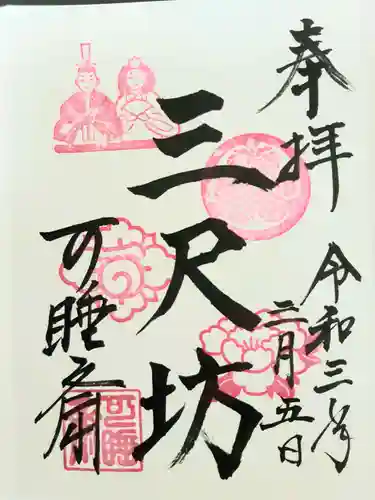 奉拝
令和三年
三月五日
三尺坊
可睡斎